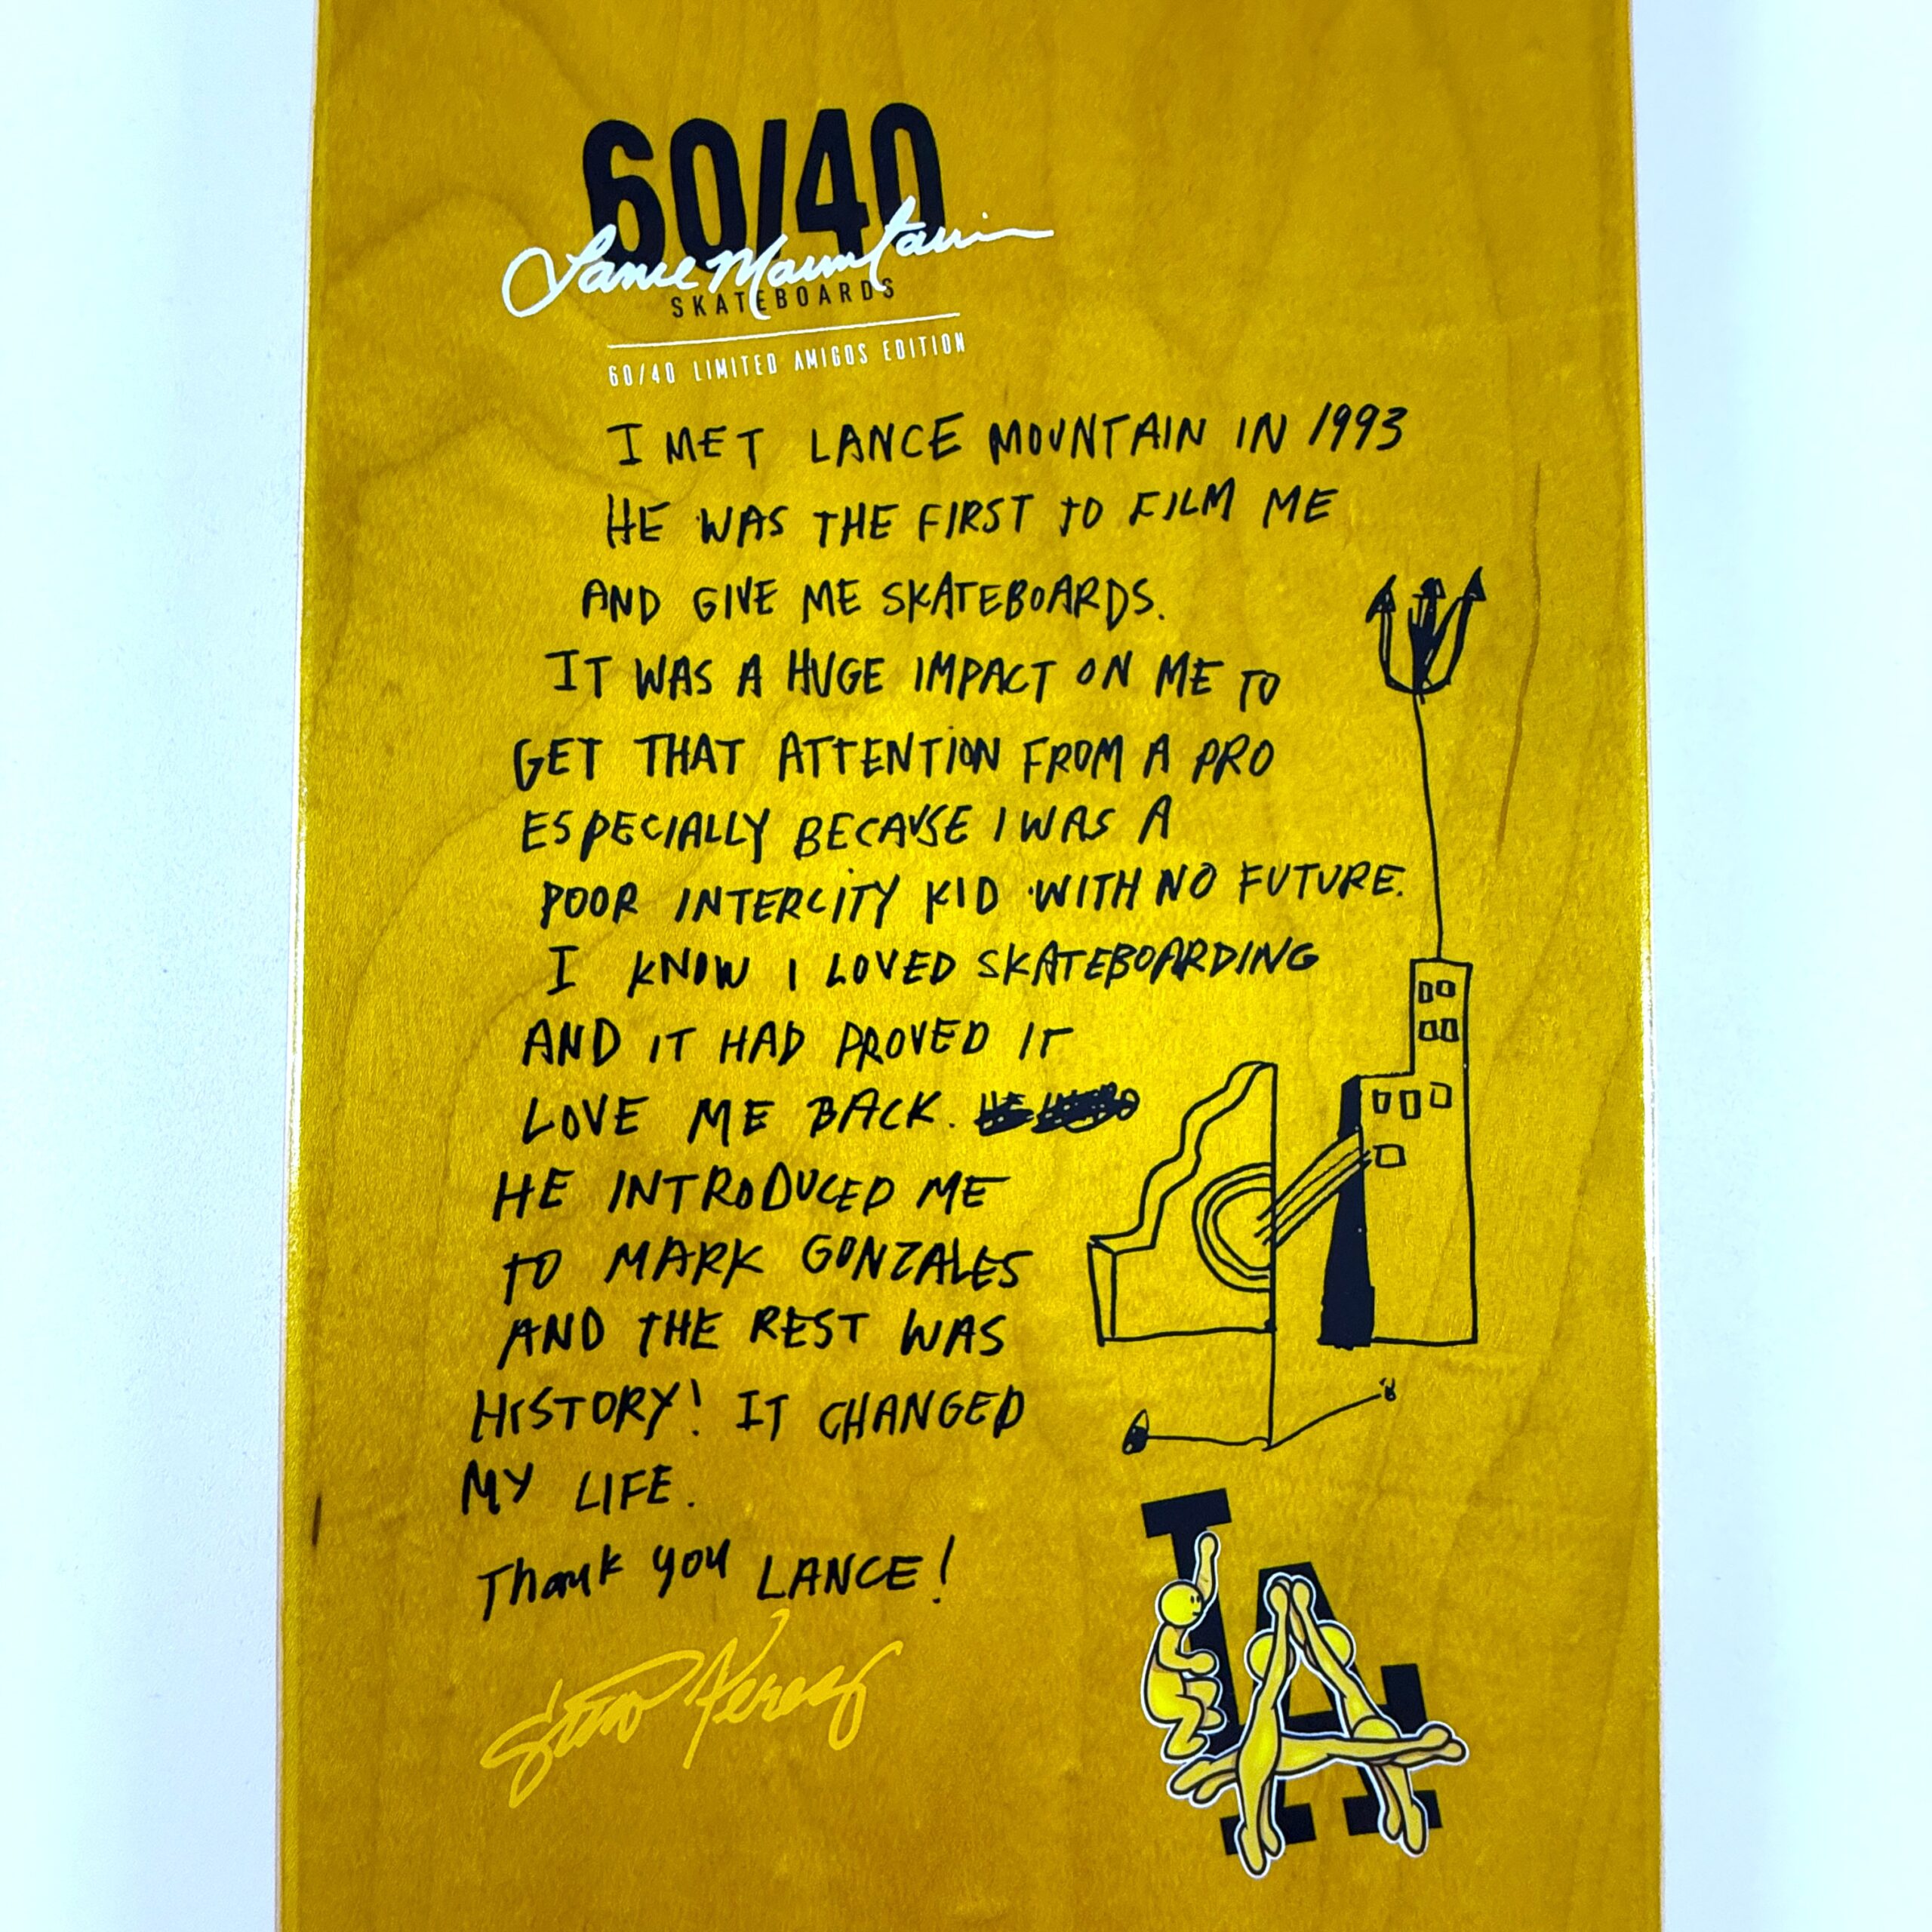 60/40
Lance Mountain
SKATEBOARDS
60/40 LIMITED AMIGOS EDITION
I MET LANCE MOUNTAIN IN 1993
HE WAS THE FIRST TO FILM ME
AND GIVE ME SKATEBOARDS.
IT WAS A HUGE IMPACT ON ME TO
GET THAT ATTENTION FROM A PRO
ESPECIALLY BECAUSE I WAS A
POOR INTERCITY KID WITH NO FUTURE.
I KNOW I LOVED SKATEBOARDING
AND IT HAD PROVED IT
LOVE ME BACK.
HE INTRODUCED ME
TO MARK GONZALES
AND THE REST WAS
HISTORY! IT CHANGED
MY LIFE.
Thank you LANCE!
Perez
LA